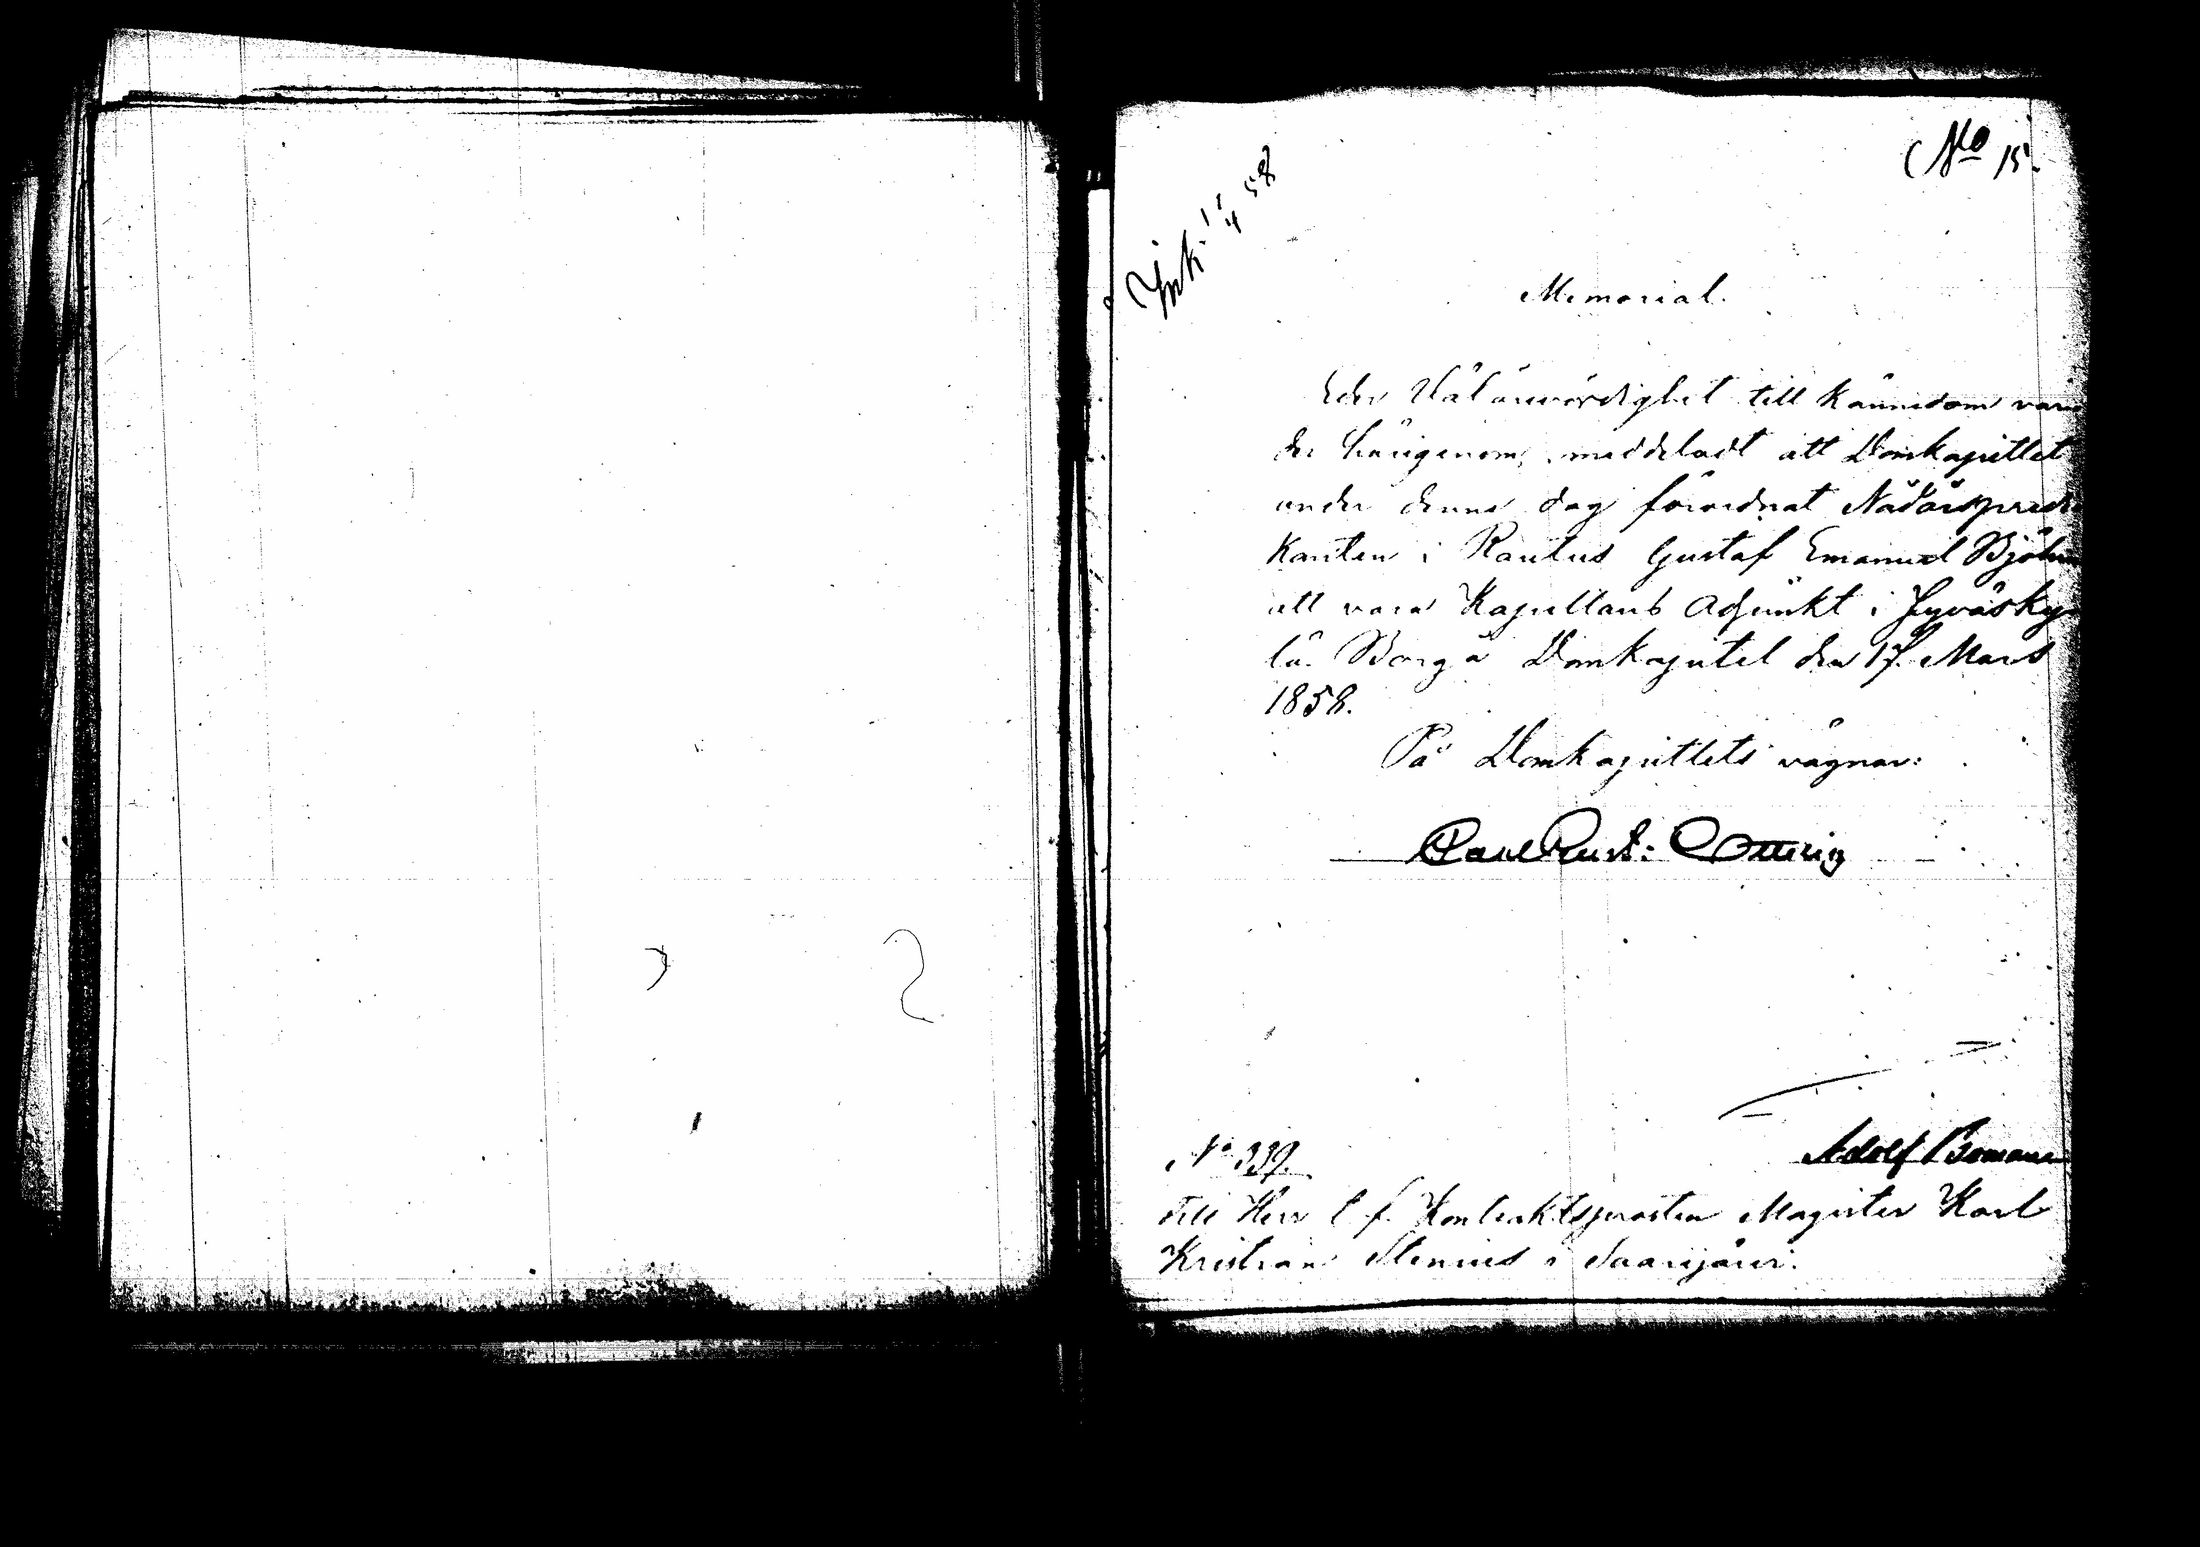 No 15.
Ink. 1/4 58
Memorial.
Eder Välärevördighet till kännedom var
der härigenom, meddeladt att Domkapitlet
under denna dag förordnat Nådårspredi
kanten i Rautus Gustaf Emanuel
att vara Kapellans Adjunkt i Jyväsky
lä. Borgå Domkapitel den 17. Mars
1858.
På Domkapitlets vägnar:
Adolf Boman
No 339.
Till Herr t. f. Kontraktsprosten Magister Karl
Kristian Stenius i Saarijärvi.